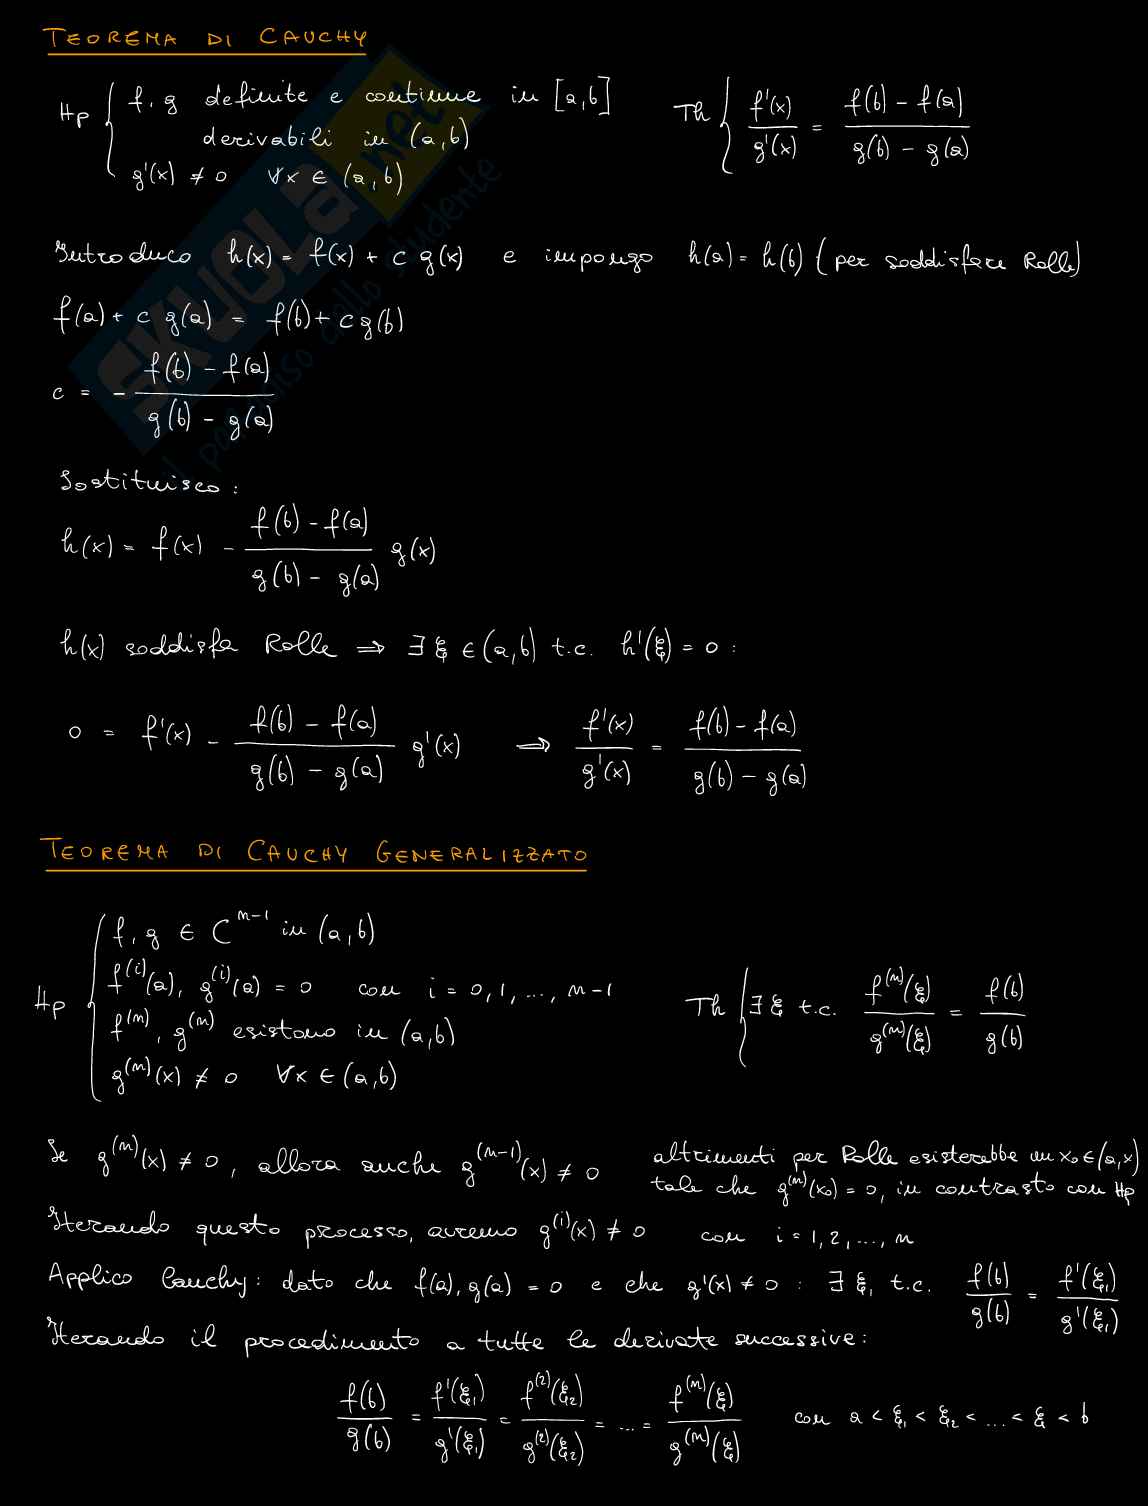 TEOREMA DI CAUCHY
Hp { f, g definite e continue in [a,b]
derivabili in (a,b)
g'(x) ≠ 0 ∀x ∈ (a,b)
Th { f'(x)/g'(x) = (f(b) - f(a))/(g(b) - g(a))
Introduco h(x) = f(x) + c g(x) e impongo h(a) = h(b) (per soddisfare Rolle)
f(a) + c g(a) = f(b) + c g(b)
c = - (f(b) - f(a))/(g(b) - g(a))
Sostituisco:
h(x) = f(x) - (f(b) - f(a))/(g(b) - g(a)) g(x)
h(x) soddisfa Rolle ⇒ ∃ ξ ∈ (a,b) t.c. h'(ξ) = 0 :
0 = f'(x) - (f(b) - f(a))/(g(b) - g(a)) g'(x) ⇒ f'(x)/g'(x) = (f(b) - f(a))/(g(b) - g(a))
TEOREMA DI CAUCHY GENERALIZZATO
Hp { f, g ∈ C^(n-1) in (a,b)
f^(i)(a), g^(i)(a) = 0 con i = 0,1,..., n-1
f^(n), g^(n) esistono in (a,b)
g^(n)(x) ≠ 0 ∀x ∈ (a,b)
Th { ∃ ξ t.c. f^(n)(ξ)/g^(n)(ξ) = f(b)/g(b)
Se g^(n)(x) ≠ 0, allora anche g^(n-1)(x) ≠ 0 altrimenti per Rolle esisterebbe un x₀ ∈ (a,x)
tale che g^(n)(x₀) = 0, in contrasto con Hp
Iterando questo processo, avremo g^(i)(x) ≠ 0 con i = 1,2,..., n
Applico Cauchy: dato che f(a), g(a) = 0 e che g'(x) ≠ 0 : ∃ ξ₁ t.c. f(b)/g(b) = f'(ξ₁)/g'(ξ₁)
Iterando il procedimento a tutte le derivate successive:
f(b)/g(b) = f'(ξ₁)/g'(ξ₁) = f^(2)(ξ₂)/g^(2)(ξ₂) = ... = f^(n)(ξ)/g^(n)(ξ) con a < ξ₁ < ξ₂ < ... < ξ < b
SKUOLA.net
il paradiso dello studente